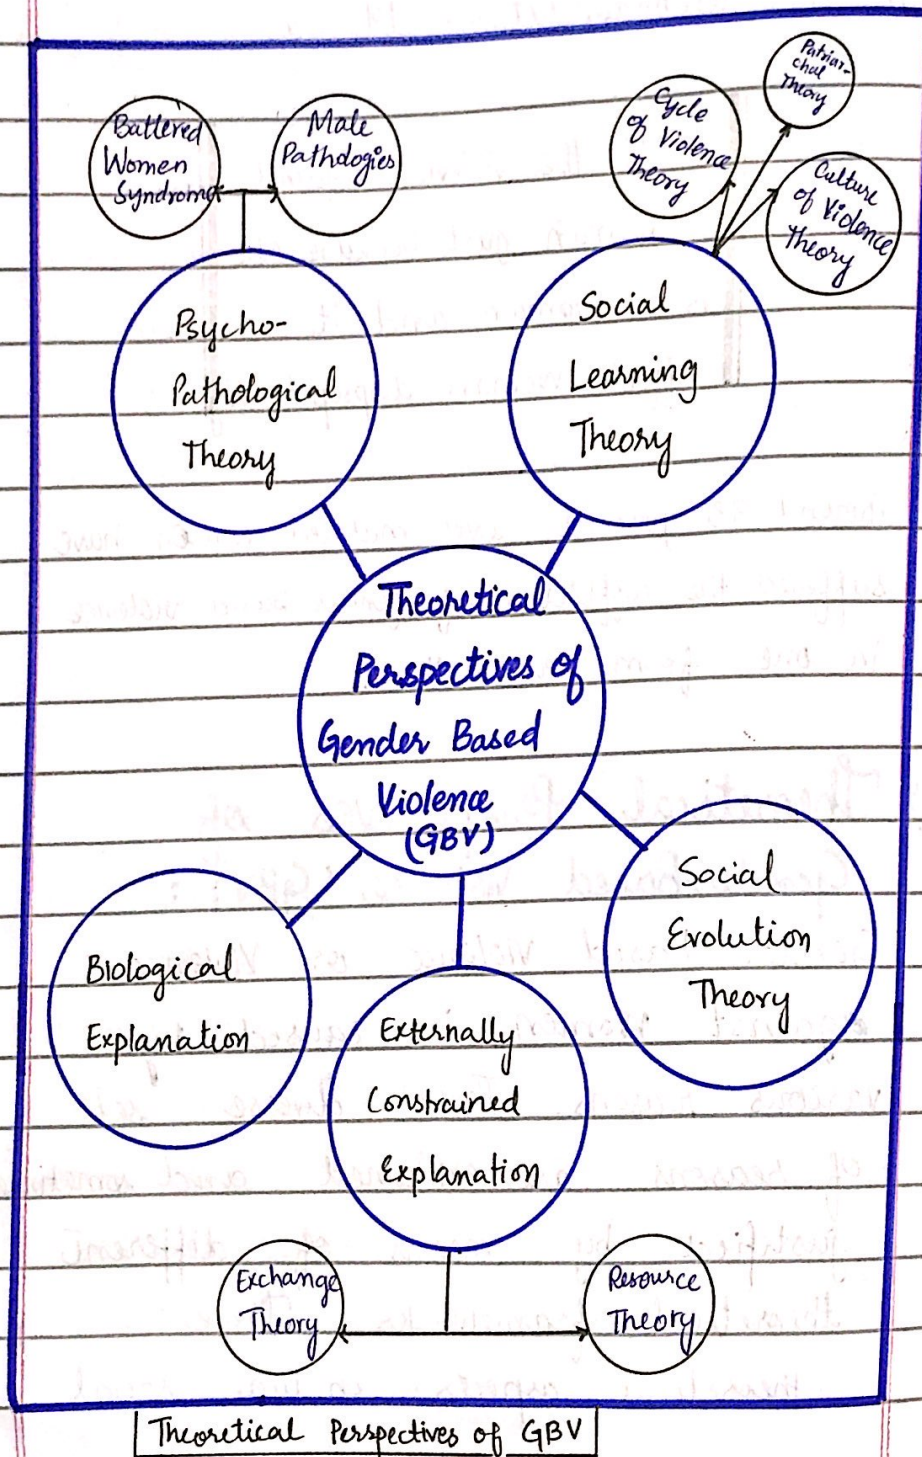 Battered
Women
Syndrome
Male
Pathologies
Cycle
of Violence
Theory
Patriar-
chal
Theory
Culture
of Violence
Theory
Psycho-
Pathological
Theory
Social
Learning
Theory
Theoretical
Perspectives of
Gender Based
Violence
(GBV)
Biological
Explanation
Externally
Constrained
Explanation
Social
Evolution
Theory
Exchange
Theory
Resource
Theory
Theoretical Perspectives of GBV